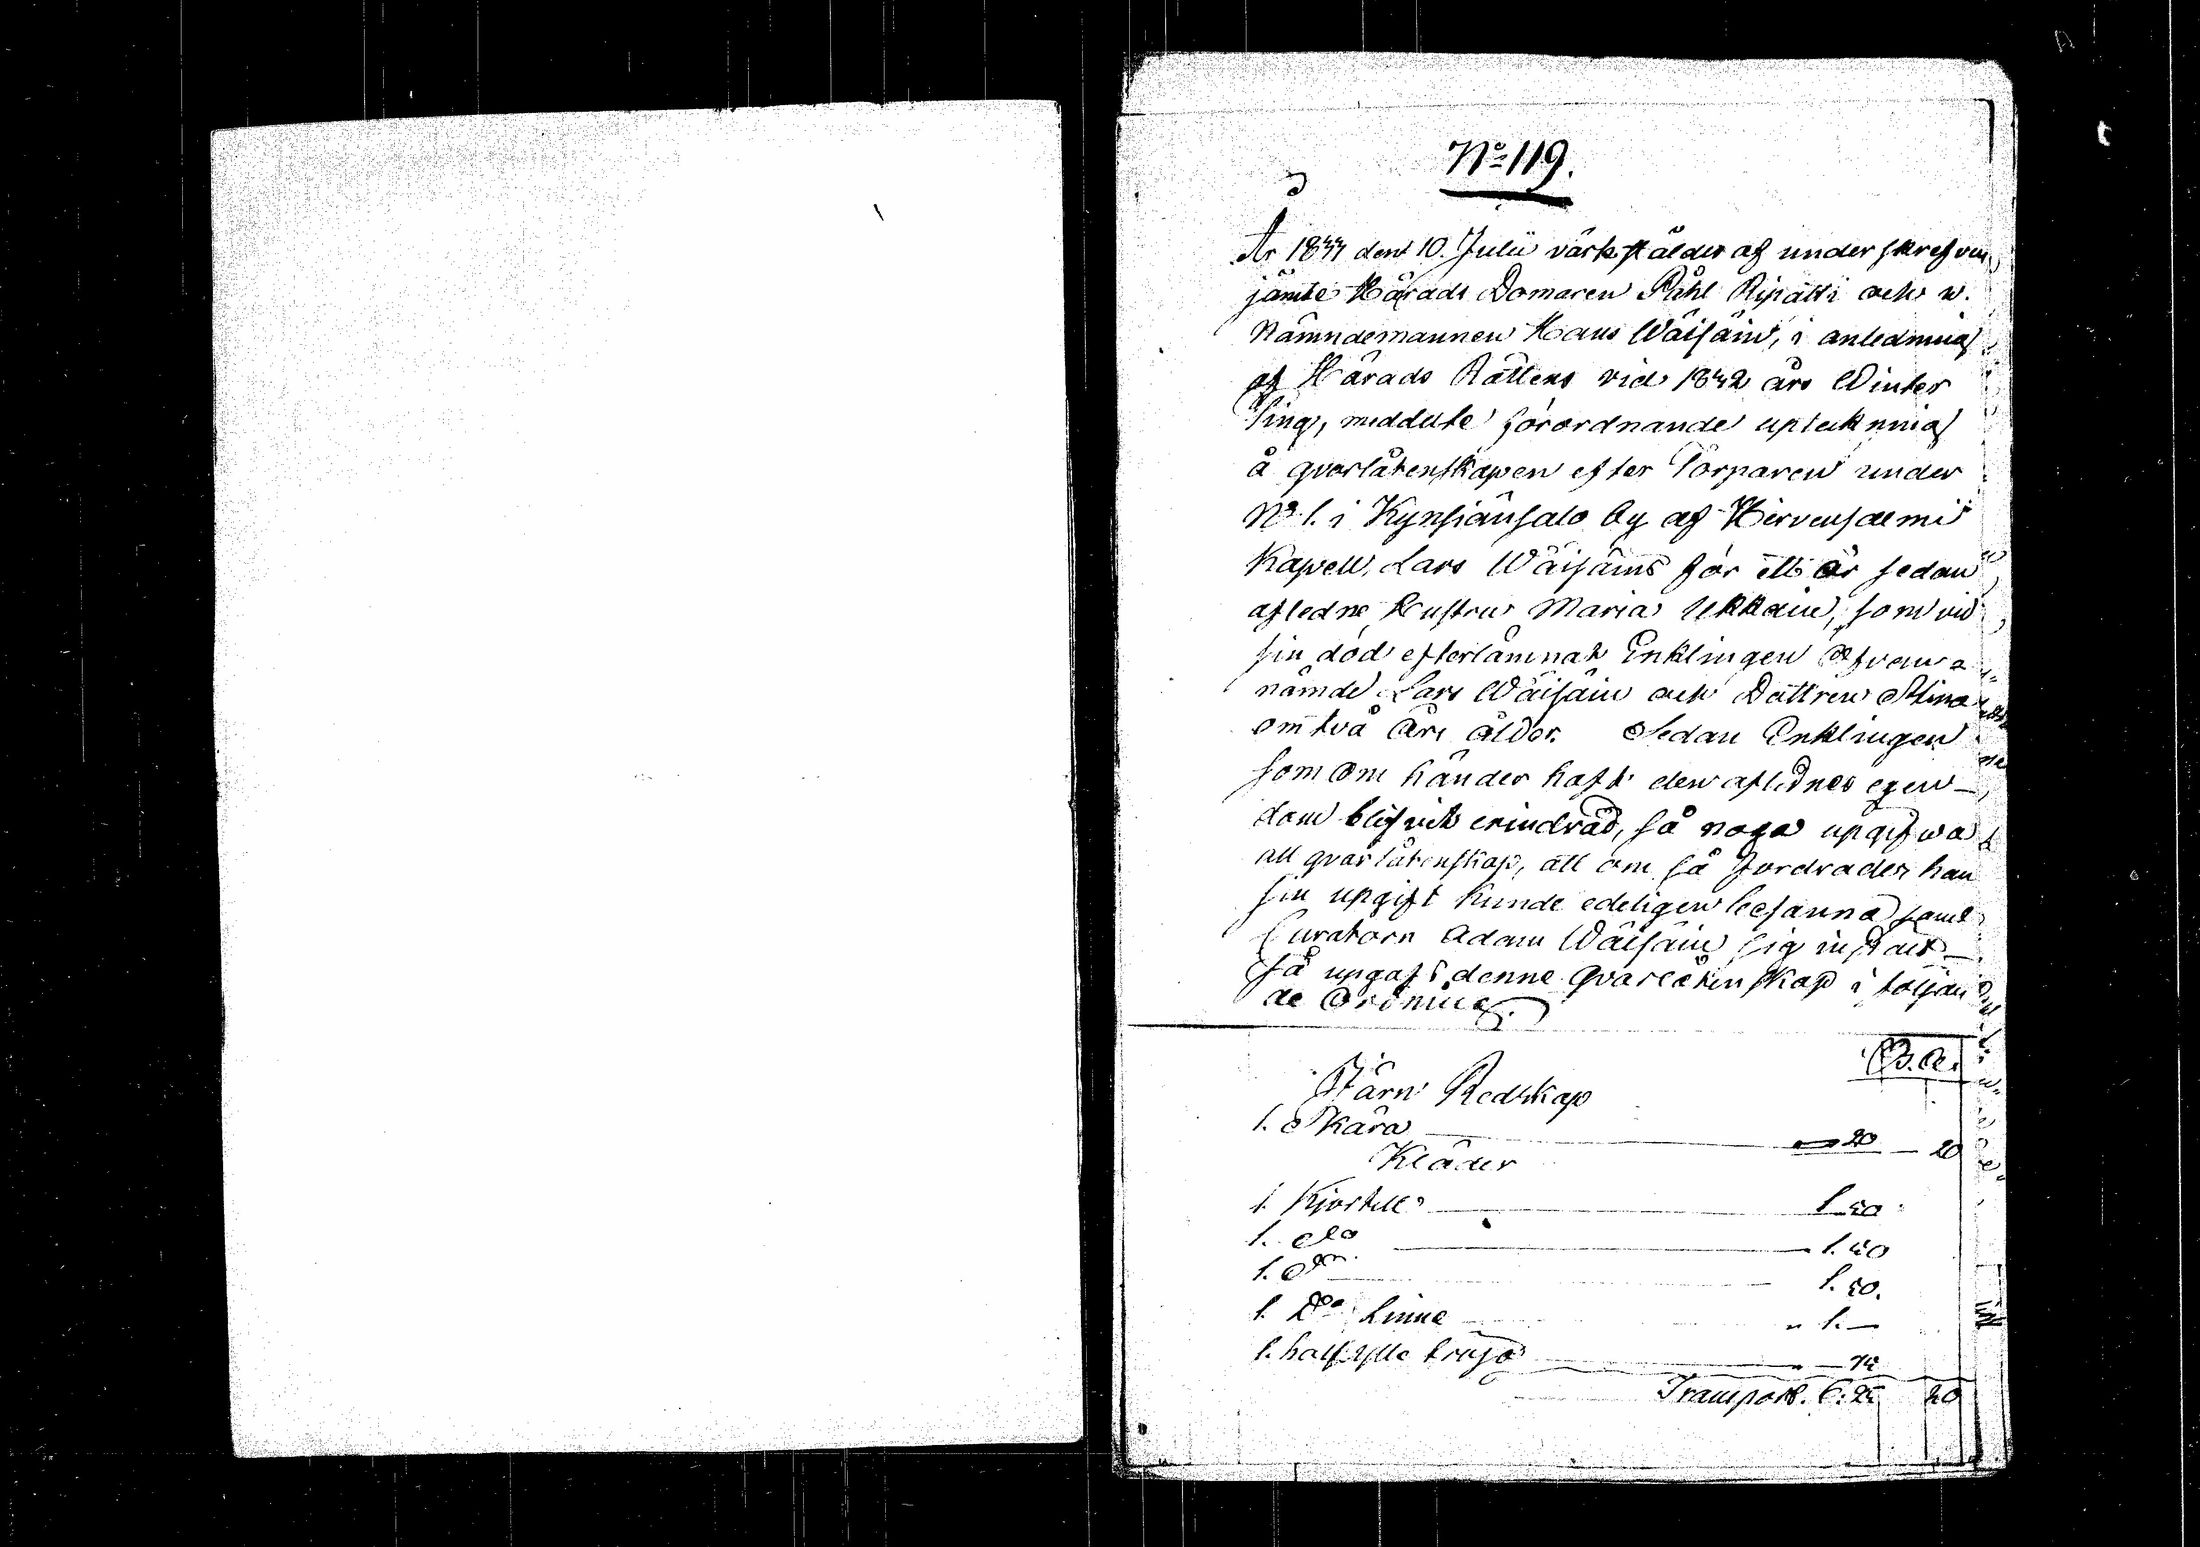 No 119.
År 1844 den 10. Julii värkstäldes af underskrefven
jämte Härads Domaren Påhl Ripatti och v.
Nämndemannen Hans Wäisäin, i anledning
af Härads Rättens vid 1842 års Winter
Ting, meddelte förordnande uptekning
å qvarlåtenskapen efter Torparen under
No 1. i Kynsiänsalo by af Hirvensalmi
Kapell, Lars Wäisäins för ett år sedan
afledne Hustru Maria Ukkain, som vid
sin död efterlämnat Enklingen ofvan
nämde Lars Wäisäin och Dottren Stina
om två års ålder. Sedan Enklingen
som om händer haft den aflidnes egen-
dom blifvit erindrad, så noga upgifwa
all qvarlåtenskap, att om så fordrades han
sin upgift kunde edeligen besanna samt
Curatorn Adam Wäisäin sig instält
så upgafs denne qvarlåtenskap i följan
de Ordning.
B. A.
Järn Redskap
1. Skära — 20 — 20
Kläder
1. Kjortell 1. 50
1. do 1. 50
1. do 1. 50.
1. Do Linne " 1. —
1. halfylle tröja — 75
Transport. 6: 25 20